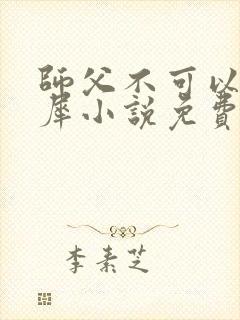 師父不可以
犀小說免費
李素芝